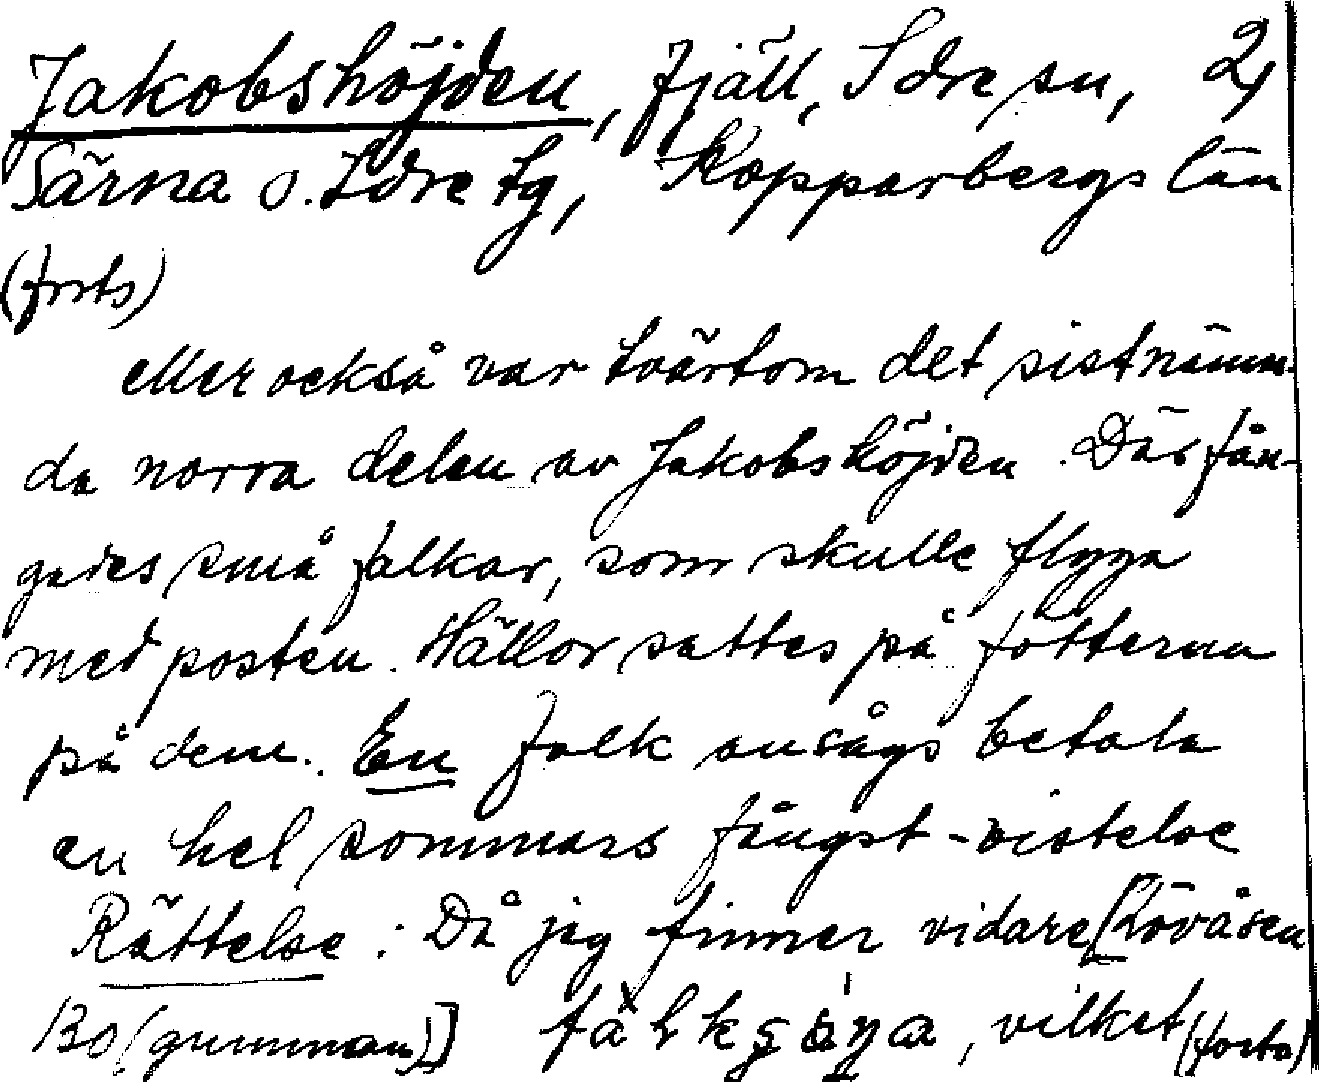 Jakobshöjden, fjäll, Idre sn, 2)
Särna o. Idre tg, Kopparbergs län
(forts)
eller också var tvärtom det sistnämn-
da norra delen av Jakobshöjden. Där fån-
gades små falkar, som skulle flyga
med posten. Hällor sattes på fötterna
på dem. En falk ansågs betala
en hel sommars fångst-vistelse
Rättelse: Då jag finner vidare [Lövåsen
130 (gumman)] , vilket (forts)